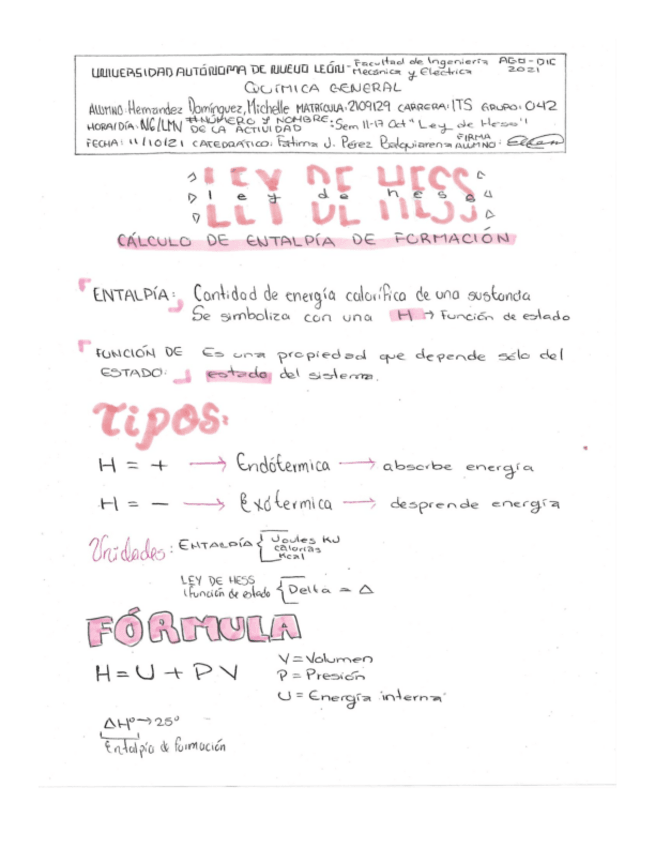 UNIVERSIDAD AUTÓNOMA DE NUEVO LEÓN - Facultad de Ingeniería Mecánica y Eléctrica AGO-DIC 2021
QUÍMICA GENERAL
ALUMNO: Hernandez Domínguez, Michelle MATRÍCULA: 2109129 CARRERA: ITS GRUPO: 042
HORA/DÍA: N6/LMN #NÚMERO Y NOMBRE DE LA ACTIVIDAD: Sem 11-17 Oct "Ley de Hess"
FECHA: 11/10/21 CATEDRÁTICO: Fatima J. Pérez FIRMA ALUMNO:
LEY DE HESS
ley de hess
LEY DE HESS
CÁLCULO DE ENTALPÍA DE FORMACIÓN
ENTALPÍA: Cantidad de energía calorífica de una sustancia
Se simboliza con una H → Función de estado
FUNCIÓN DE ESTADO: Es una propiedad que depende sólo del
estado del sistema.
Tipos:
H = + → Endótermica → absorbe energía
H = - → Exótermica → desprende energía
Unidades: ENTALPÍA { Joules KJ
calorías
Kcal
LEY DE HESS
(función de estado { Delta = Δ
FÓRMULA
H = U + PV
V = Volumen
P = Presión
U = Energía interna
ΔH° → 25°
Entalpía de formación